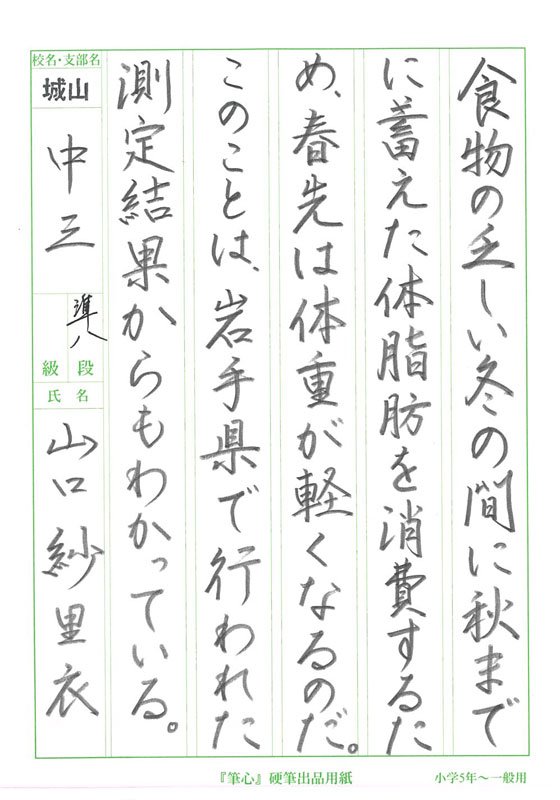 食物の乏しい冬の間に秋まで
に蓄えた体脂肪を消費するた
め、春先は体重が軽くなるのだ。
このことは、岩手県で行われた
測定結果からもわかっている。
校名・支部名
城山
中三
準八
級 段
氏 名
山口紗里衣
『筆心』硬筆出品用紙
小学5年～一般用